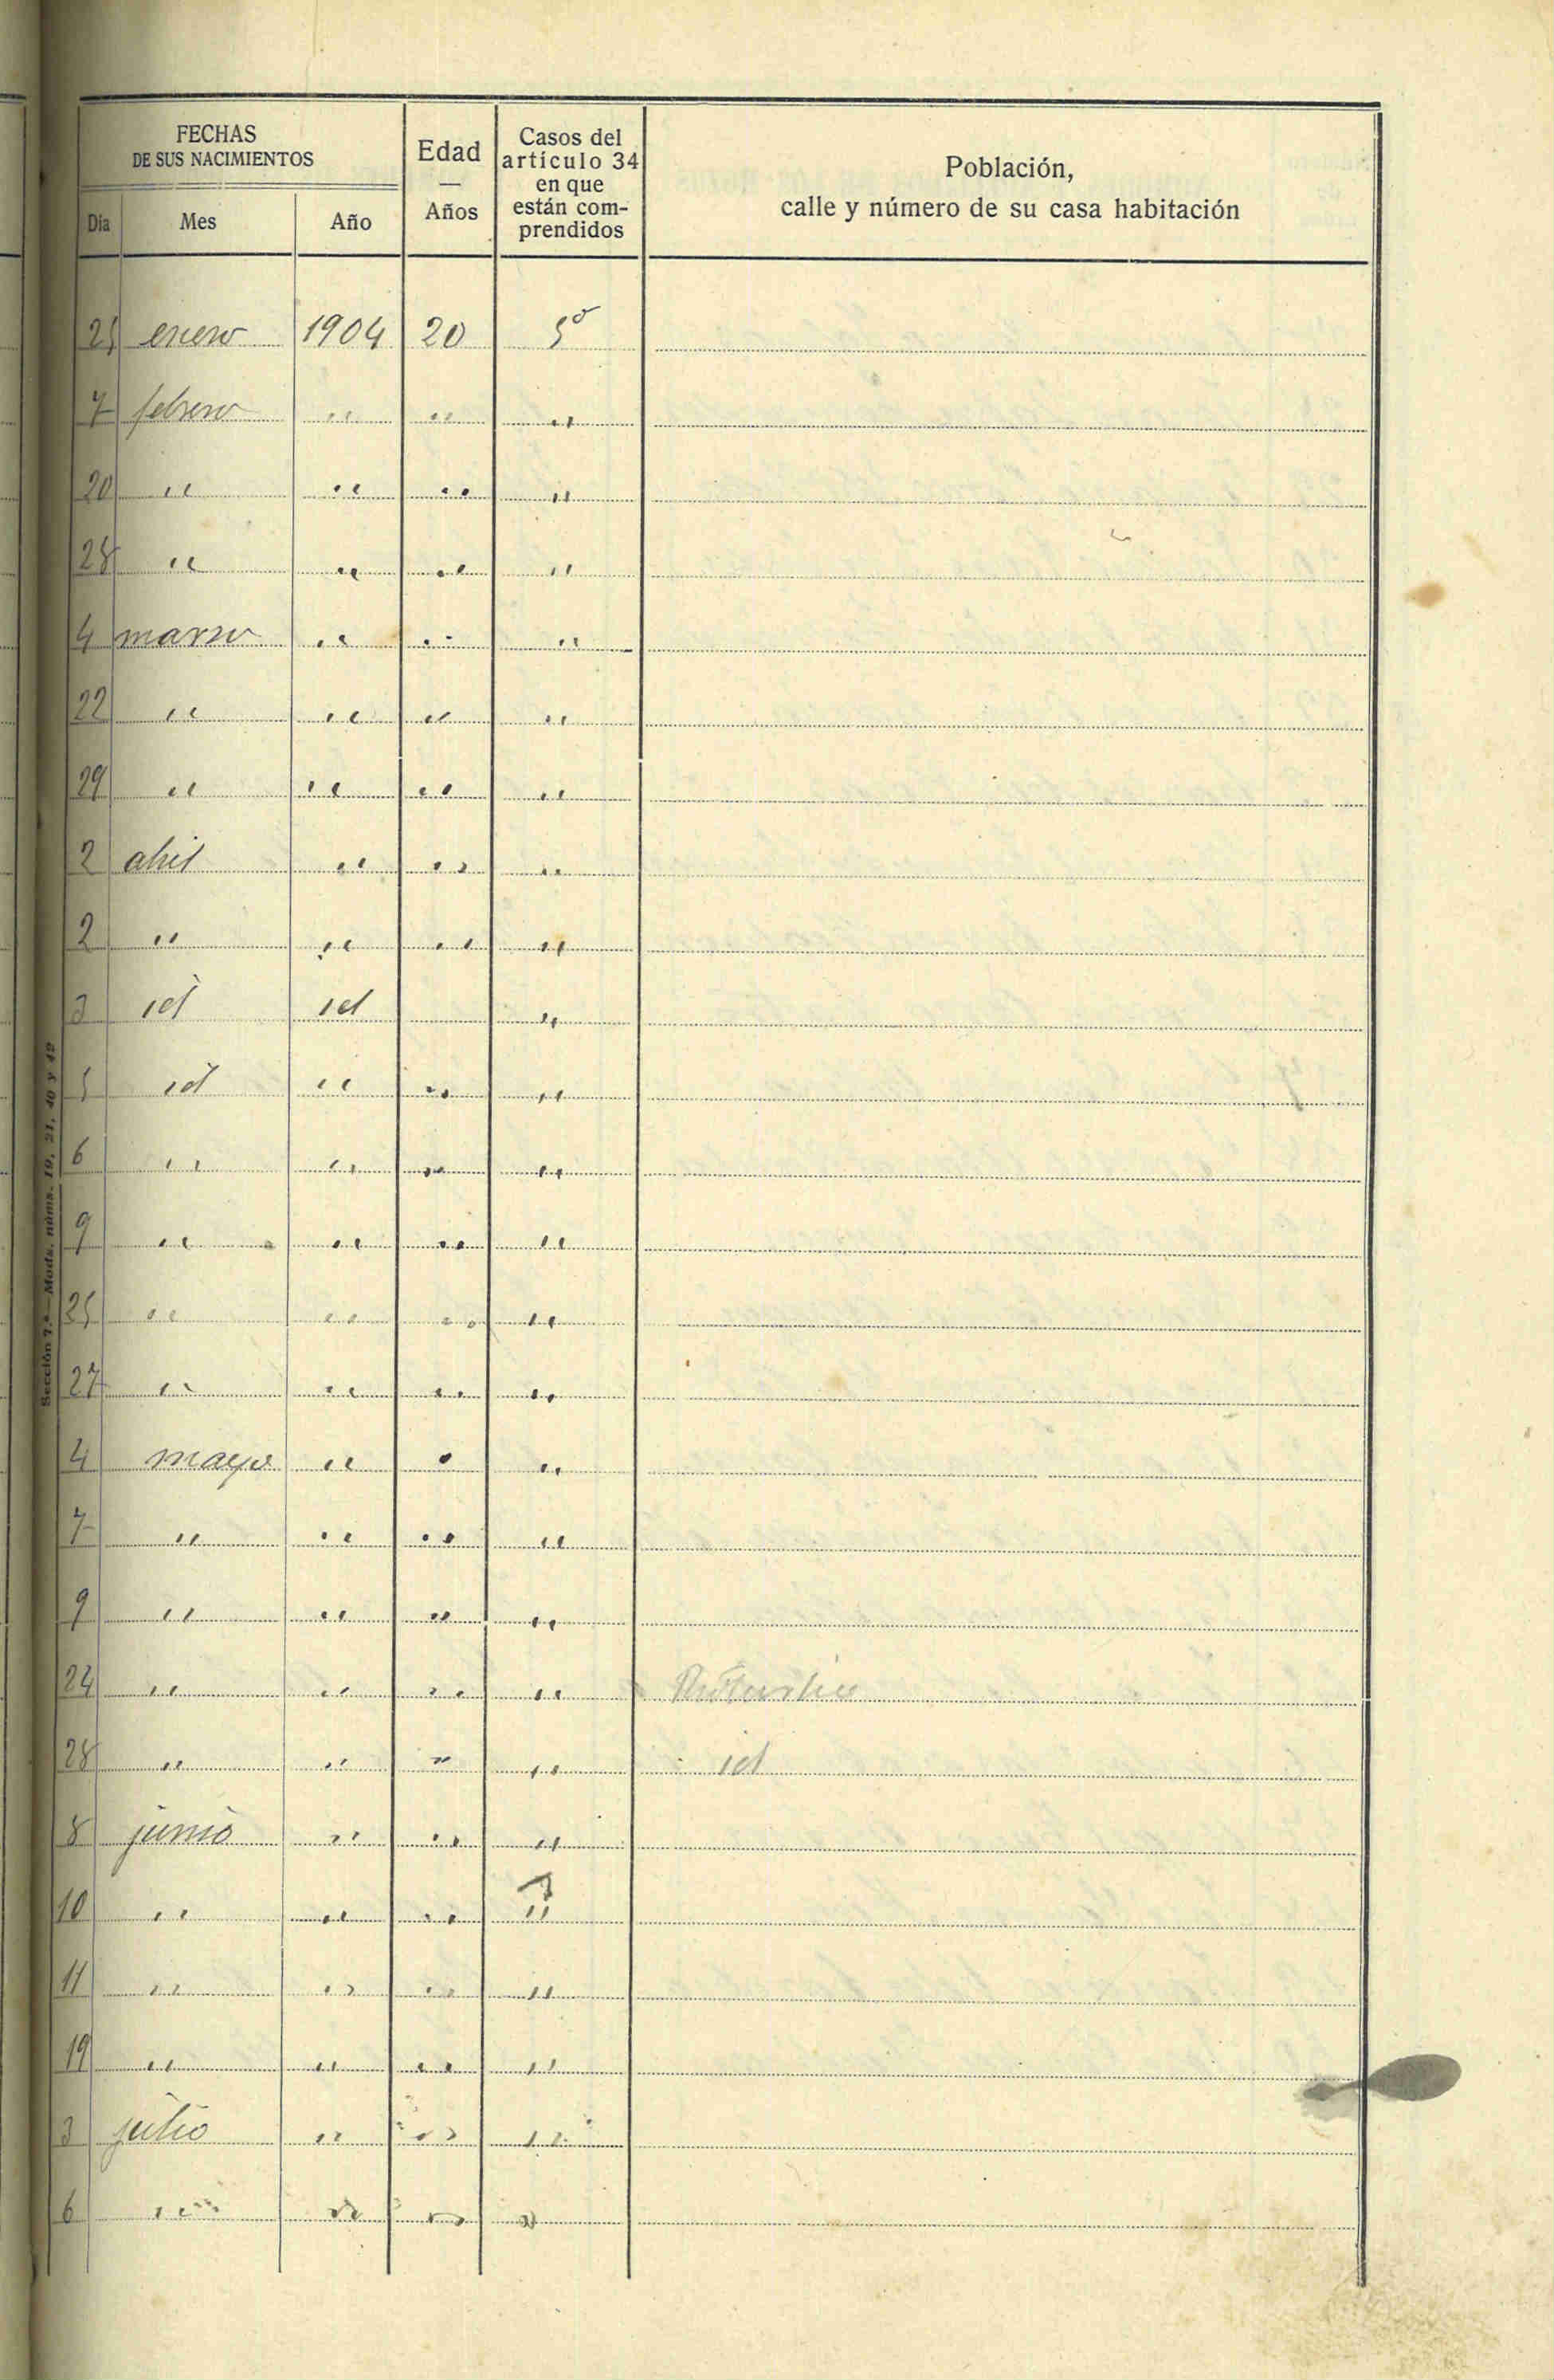 FECHAS
DE SUS NACIMIENTOS
Edad
—
Años
Casos del
artículo 34
en que
están com-
prendidos
Población,
calle y número de su casa habitación
Día Mes Año
25 enero 1904 20 5º
7 febrero " " "
20 " " " "
28 " " " "
4 marzo " " "
22 " " " "
29 " " " "
2 abril " " "
2 " " " "
3 id id "
5 id " " "
6 " " " "
9 " " " "
25 " " " "
27 " " " "
4 mayo " " "
7 " " " "
9 " " " "
24 " " " "
28 " " " " id
8 junio " " "
10 " " " "
11 " " " "
19 " " " "
3 julio " " "
6 " " " "
Sección 7.ª—Mods. núms. 19, 21, 40 y 42